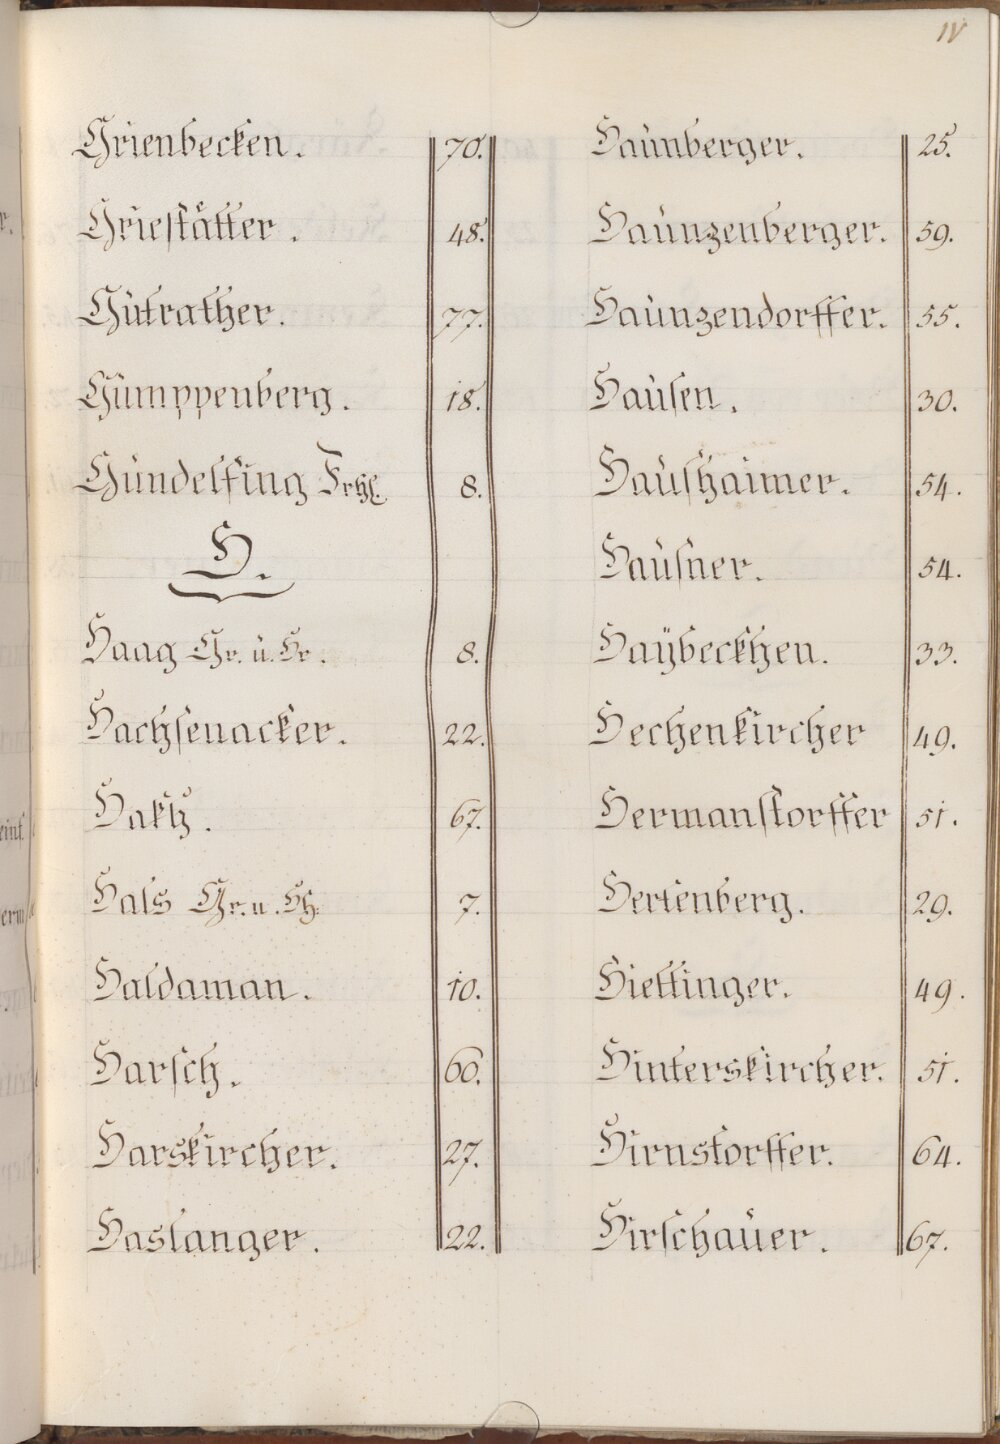 IV
Grienbecken. 70.
Griestätter. 48.
Gutrather. 77.
Gumppenberg. 18.
Gundelfing Frhl. 8.
H.
Haag Gr. u. Hr. 8.
Hachsenacker. 22.
Haktz. 67.
Hals Gr. u. Hh: 7.
Haldaman. 10.
Harsch. 60.
Harskircher. 27.
Haslanger. 22.
Haunberger. 25.
Haunzenberger. 59.
Haunzendorffer. 55.
Hausen. 30.
Haushaimer. 54.
Hausner. 54.
Haÿbeckhen. 33.
Hechenkircher 49.
Hermanstorffer 51.
Hertenberg. 29.
Hiettinger. 49.
Hinterskircher. 51.
Hirnstorffer. 64.
Hirschauer. 67.